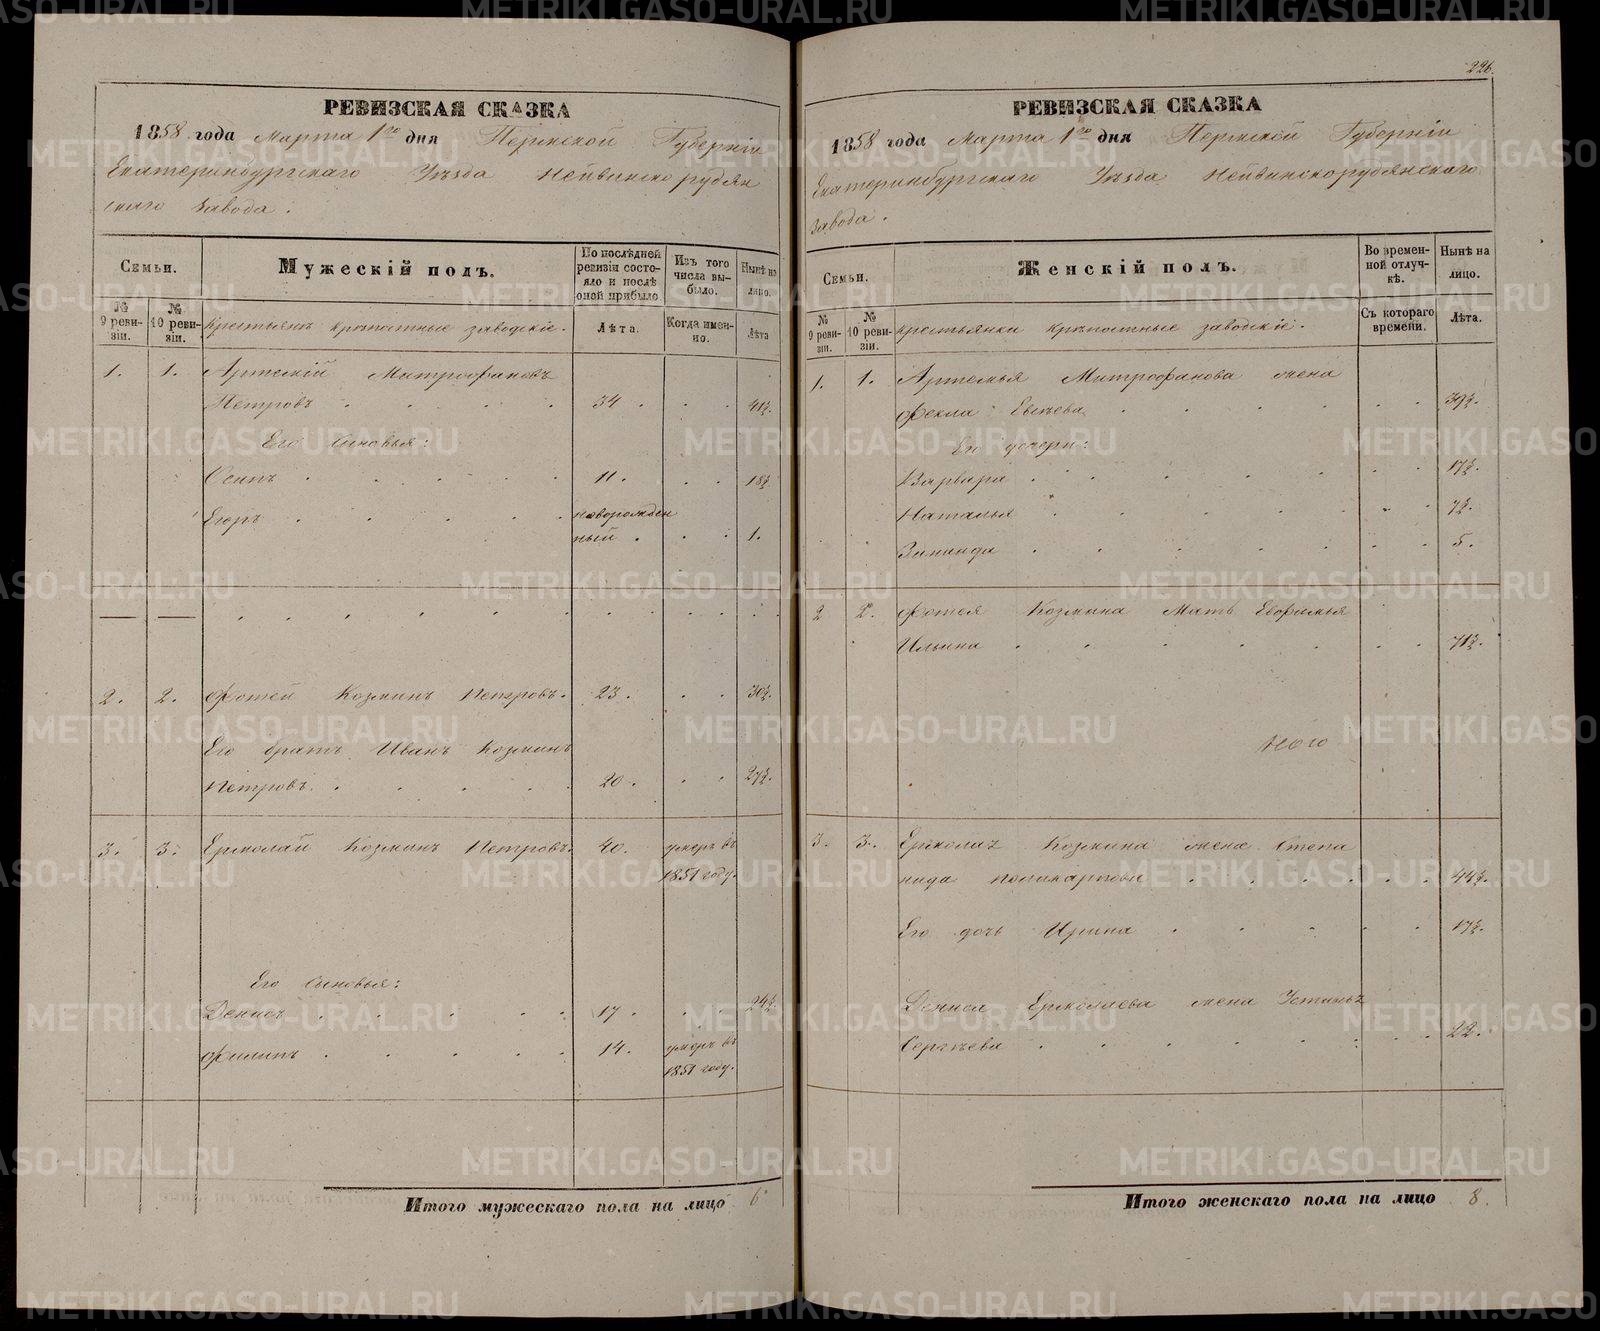 226.
РЕВИЗСКАЯ СКАЗКА
1858 года Марта 1го дня Пермской Губерніи
Екатеринбургскаго Уѣзда Нейвинскорудян
скаго завода.
Семьи.
Мужескій полъ.
По послѣдней ревизіи состояло и послѣ оной прибыло
Изъ того числа выбыло.
Нынѣ на лицо.
№ 9 ревизіи.
№ 10 ревизіи.
Крестьянъ крѣпостные заводскіе.
Лѣта.
Когда именно.
Лѣта
1. 1. Артемій Митрофановъ
Петровъ 34. 41½.
Его сыновья:
Осипъ 11. 18½
Егоръ новорожден
ный 1.
2. 2. Фотей Козминъ Петровъ. 23. 30½.
Его братъ Иванъ Козминъ
Петровъ 20. 27½.
3. 3. Ермолай Козминъ Петровъ. 40. умеръ въ
1851 году.
Его сыновья:
Денисъ 17. 24½
Филипъ 14. умеръ въ
1851 году.
Итого мужескаго пола на лицо 6
РЕВИЗСКАЯ СКАЗКА
1858 года Марта 1го дня Пермской Губерніи
Екатеринбургскаго Уѣзда Нейвинскорудянскаго
завода.
Семьи.
Женскій полъ.
Во временной отлучкѣ.
Нынѣ на лицо.
№ 9 ревизіи.
№ 10 ревизіи.
крестьянки крѣпостные заводскіе.
Съ котораго времени.
Лѣта.
1. 1. Артемья Митрофанова жена
Фекла Евсѣева 39½.
Его дочери:
Варвара 17½.
Наталья 7½.
Зинаида 5.
2 2. Фотея Козмина Мать Евфимья
Ильина 71½.
3. 3. Ермолая Козмина жена Степа
нида Поликарпова 44½.
Его дочь Ирина 17½.
Дениса Ермолаева жена Устинья
Сергѣева 22.
Итого женскаго пола на лицо 8.
METRIKI.GASO-URAL.RU